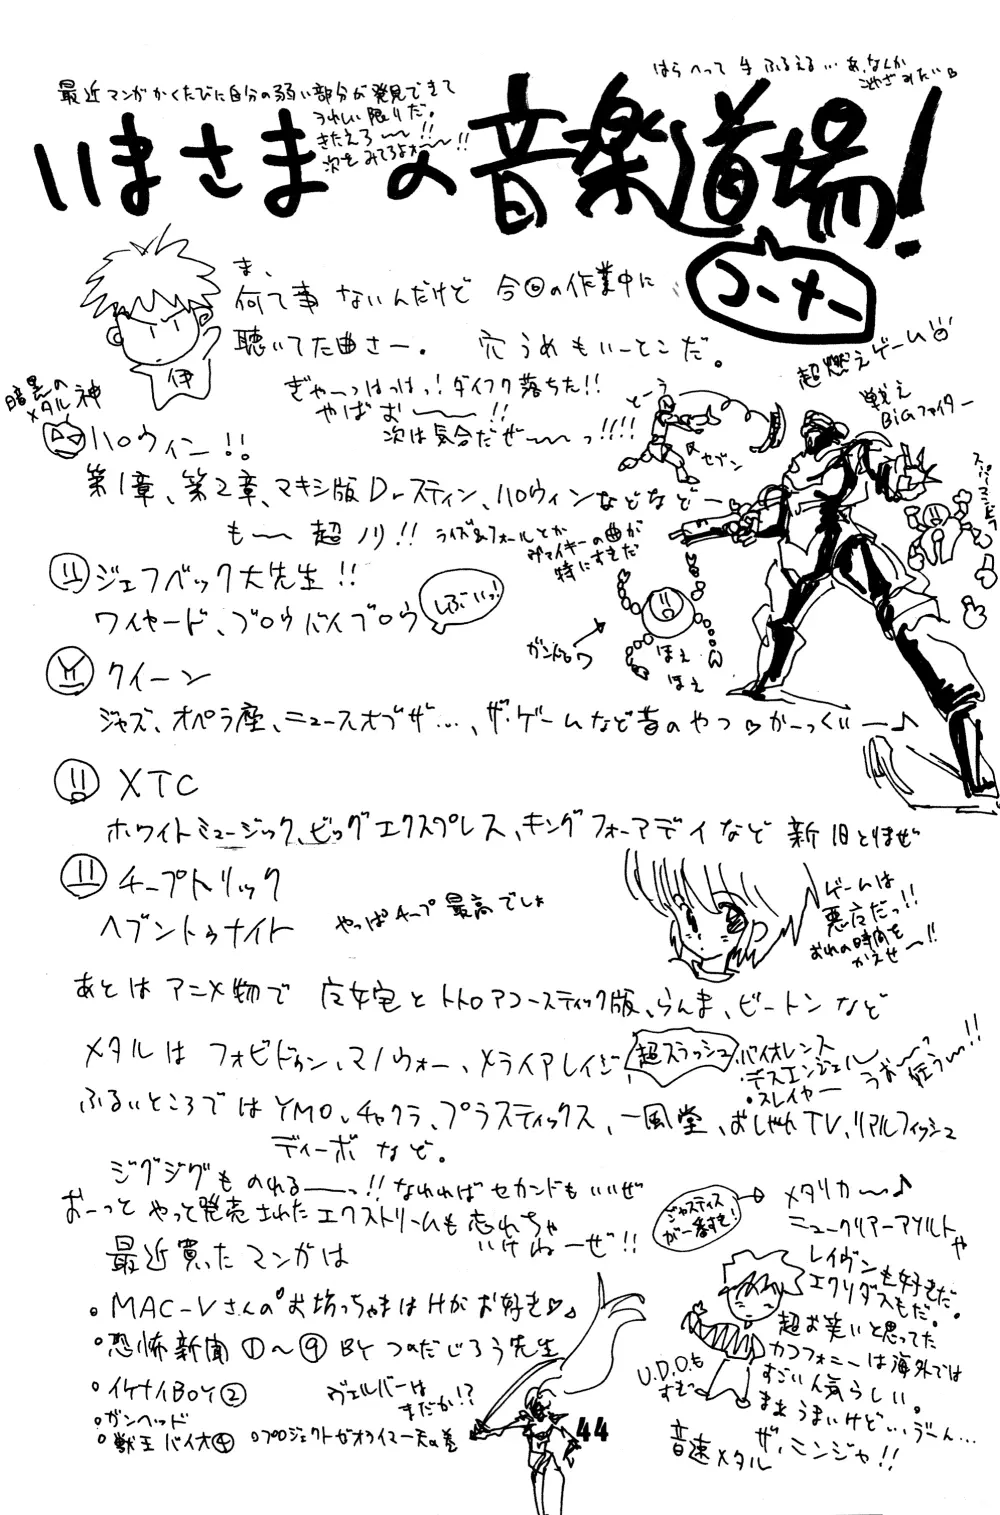 はらへって手ふるえる…あ、なんか
最近マンガかくたびに自分の弱い部分が発見できて
うれしい限りだ。
きたえろ〜〜!!
次をみてろよォ〜〜!!
いまさまの音楽道場!
コーナー
ま、
何て事ないんだけど今回の作業中に
聴いてた曲さー。穴うめもいーとこだ。
伊
ぎゃーっはっはっ!ダイフク落ちた!!
やばお〜〜!!
次は気合だぜ〜〜っ!!!!
超燃えゲーム
戦え
BiGファイター
セブン
暗黒の
メタル神
ハロウィン!!
第1章、第2章、マキシ版Dr.スティン、ハロウィンなどなどー
も〜〜超ノリ!!
ライズ&フォールとか
ヴァイキーの曲が
特にすきだ
ジェフベック大先生!!
ワイヤード、ブロウバイブロウ
しぶいっ!
ほえ
ほえ
クイーン
ジャズ、オペラ座、ニュースオブザ…、ザ・ゲームなど昔のやつ♡かーっくいー♪
XTC
ホワイトミュージック、ビッグエクスプレス、キングフォーアデイなど新旧とりまぜ
チープトリック
ヘブントゥナイト
やっぱチープ最高でしょ
ゲームは
悪だっ!!
おれの時間を
かえせ〜!!
あとはアニメ物で魔女宅とトトロアコースティック版、らんま、ビートンなど
メタルはフォビドゥン、マノウォー、メライアレイジ
超スラッシュ
・バイオレンス
・デスエンジェル
・スレイヤー
うお〜〜っ狂う〜!!
ふるいところではYMO、チャクラ、プラスティックス、一風堂、おしゃれTV、リアルフィッシュ
ディーボなど。
ジグジグものれる〜〜っ!!なれればセカンドもいいぜ
おーっとやっと発売されたエクストリームも忘れちゃ
いけねーぜ!!
ジャスティス
が一番すき!
メタリカ〜♪
ニュークリアーアソルトや
レイヴンも好きだ。
エクソダスもだ。
超お笑いと思ってた
カコフォニーは海外では
すごい人気らしい。
まぁうまいけど…、うーん…
ザ・ニンジャ!!
U.D.O.も
すき
音速メタル
最近買ったマンガは
・MAC-Vさんのお坊っちゃまはHがお好き♡
・恐怖新聞①〜⑨BYつのだじろう先生
・イケナイBOY②
・ガンヘッド
・獣王バイオ④
・プロジェクトゼオライマー天の巻
ヴェルバーは
まだか!?
44